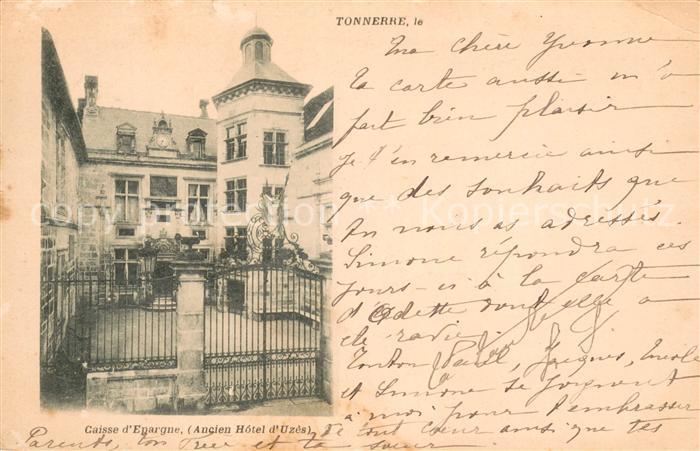 TONNERRE, le
Ma chère Yvonne
Ta carte aussi m'a
fait bien plaisir
je t'en remercie ainsi
que des souhaits que
tu nous as adressés.
Simone répondra ces
jours-ci à la carte
d'Odette dont elle a
été ravie.
Tonton Paul, Jacques,
et Simone se joignent
à moi pour t'embrasser
de tout cœur ainsi que tes
Caisse d'Epargne, (Ancien Hôtel d'Uzès)
Parents, ton et ta sœur.
copyright ** Kopierschutz